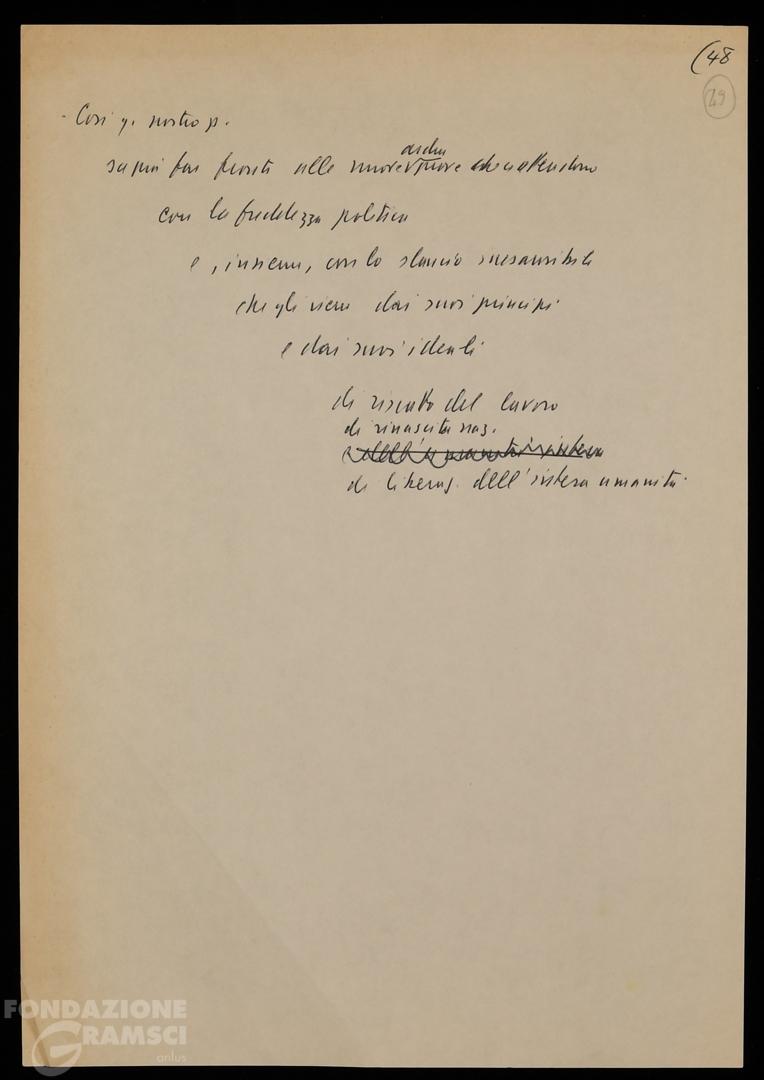 (48
49
- Così q. nostro p.
saprà far fronte alle nuove ardue prove che ci attendono
con la freddezza politica
e, insieme, con lo slancio inesauribile
che gli viene dai suoi principi
e dai suoi ideali
di riscatto del lavoro
di rinascita naz.
e dell'umanità intera
di liberaz. dell'intera umanità.
FONDAZIONE
GRAMSCI
onlus